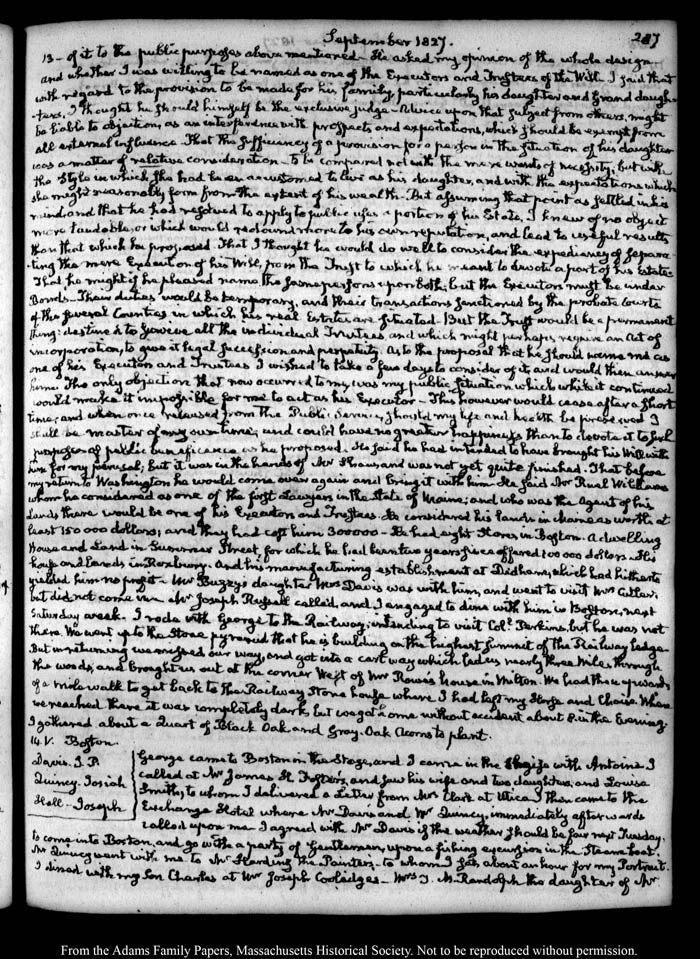 September 1827.
287
13 - of it to the public purposes above mentioned - He asked my opinion of the whole design
and whether I was willing to be named as one of the Executors and Trustees of the Will. I said that
with regard to the provision to be made for his family, particularly his daughter and Grand daugh-
ters, I thought he should himself be the exclusive judge - Advice upon that subject from others, might
be liable to objection, as an interference with prospects and expectations, which should be exempt from
all external influence. That the sufficiency of a provision for a person in the situation of his daughter
was a matter of relative consideration - to be compared not with the mere wants of necessity, but with
the Style in which she had been accustomed to live as his daughter, and with the expectations which
she might reasonably form from the extent of his wealth - But assuming that point as settled in his
mind, and that he had resolved to apply to public uses a portion of his Estate, I knew of no object
more laudable, or which would redound more to his own reputation, and lead to useful results
than that which he proposed. That I thought he would do well to consider the expediency of separa-
ting the mere Execution of his Will, from the Trust to which he meant to devote a part of his Estate
That he might if he pleased name the same persons upon both; but the Executors must be under
Bonds - Their duties would be temporary, and their transactions sanctioned by the probate Courts
of the several Counties in which his real Estates are situated. But the Trust would be a permanent
thing; destined to survive all the individual Trustees, and which might perhaps require an Act of
incorporation, to give it legal succession and perpetuity. As to the proposal that he should name me as
one of his Executors and Trustees I wished to take a few days to consider of it, and would then answer
him. The only objection that now occurred to me, was my public situation which while it continued
would make it impossible for me to act as his Executor - This however would cease after a short
time; and when once released from the Public service, should my life and health be preserved I
shall be master of my own time; and could have no greater happiness than to devote it to such
purposes of public beneficence as he proposed. He said he had intended to have brought his Will with
him for my perusal; but it was in the hands of Mr Shaw, and was not yet quite finished. That before
my return to Washington he would come over again and bring it with him. He said Mr Ruel Williams
whom he considered as one of the first Lawyers in the State of Maine; and who was the Agent of his
Lands there would be one of his Executors and Trustees. He considered his lands in Maine as worth at
least 150 000 dollars; and they had cost him 300 000 - He had eight Stores in Boston. A dwelling
House and Land in Summer Street, for which he had been two years since offered 100 000 dollars. His
house and Lands in Roxbury. And his manufacturing establishment at Dedham, which had hitherto
yielded him no profit - Mr Bussey's daughter Mrs Davis was with him, and went to visit Mrs
but did not come in. Mr Joseph Russell called, and I engaged to dine with him in Boston, next
Saturday week. I rode with George to the Railway; intending to visit Colo. Perkins, but he was not
there. We went up to the Stone pyramid that he is building on the highest summit of the Railway ledge.
But in returning we missed our way, and got into a cart way which led us nearly three Miles through
the woods, and brought us out at the corner West of Mr Rowe's house in Milton. We had then upwards
of a mile walk to get back to the Railway Stone house where I had left my Horse and Chaise. When
we reached there it was completely dark, but we got home without accident about 8 in the Evening.
I gathered about a Quart of Black Oak and Gray-Oak Acorns to plant.
14. V. Boston.
Davis. I. P.
Quincy. Josiah
Hall - Joseph
George came to Boston in the Stage, and I came in the with Antoine. I
called at Mr James H. Foster's, and saw his wife and two daughters, and Louisa
Smith, to whom I delivered a Letter from Mrs Clark at Utica. I then came to the
Exchange Hotel where Mr Davis and Mr Quincy, immediately afterwards
called upon me. I agreed with Mr Davis if the weather should be fair next Tuesday,
to come into Boston, and go with a party of Gentlemen, upon a fishing excursion in the Steam boat.
Mr Quincy went with me to Mr Harding the Painter, to whom I sat about an hour for my Portrait.
I dined with my Son Charles at Mr Joseph Coolidge's - Mrs T. M. Randolph the daughter of Mr
From the Adams Family Papers, Massachusetts Historical Society. Not to be reproduced without permission.